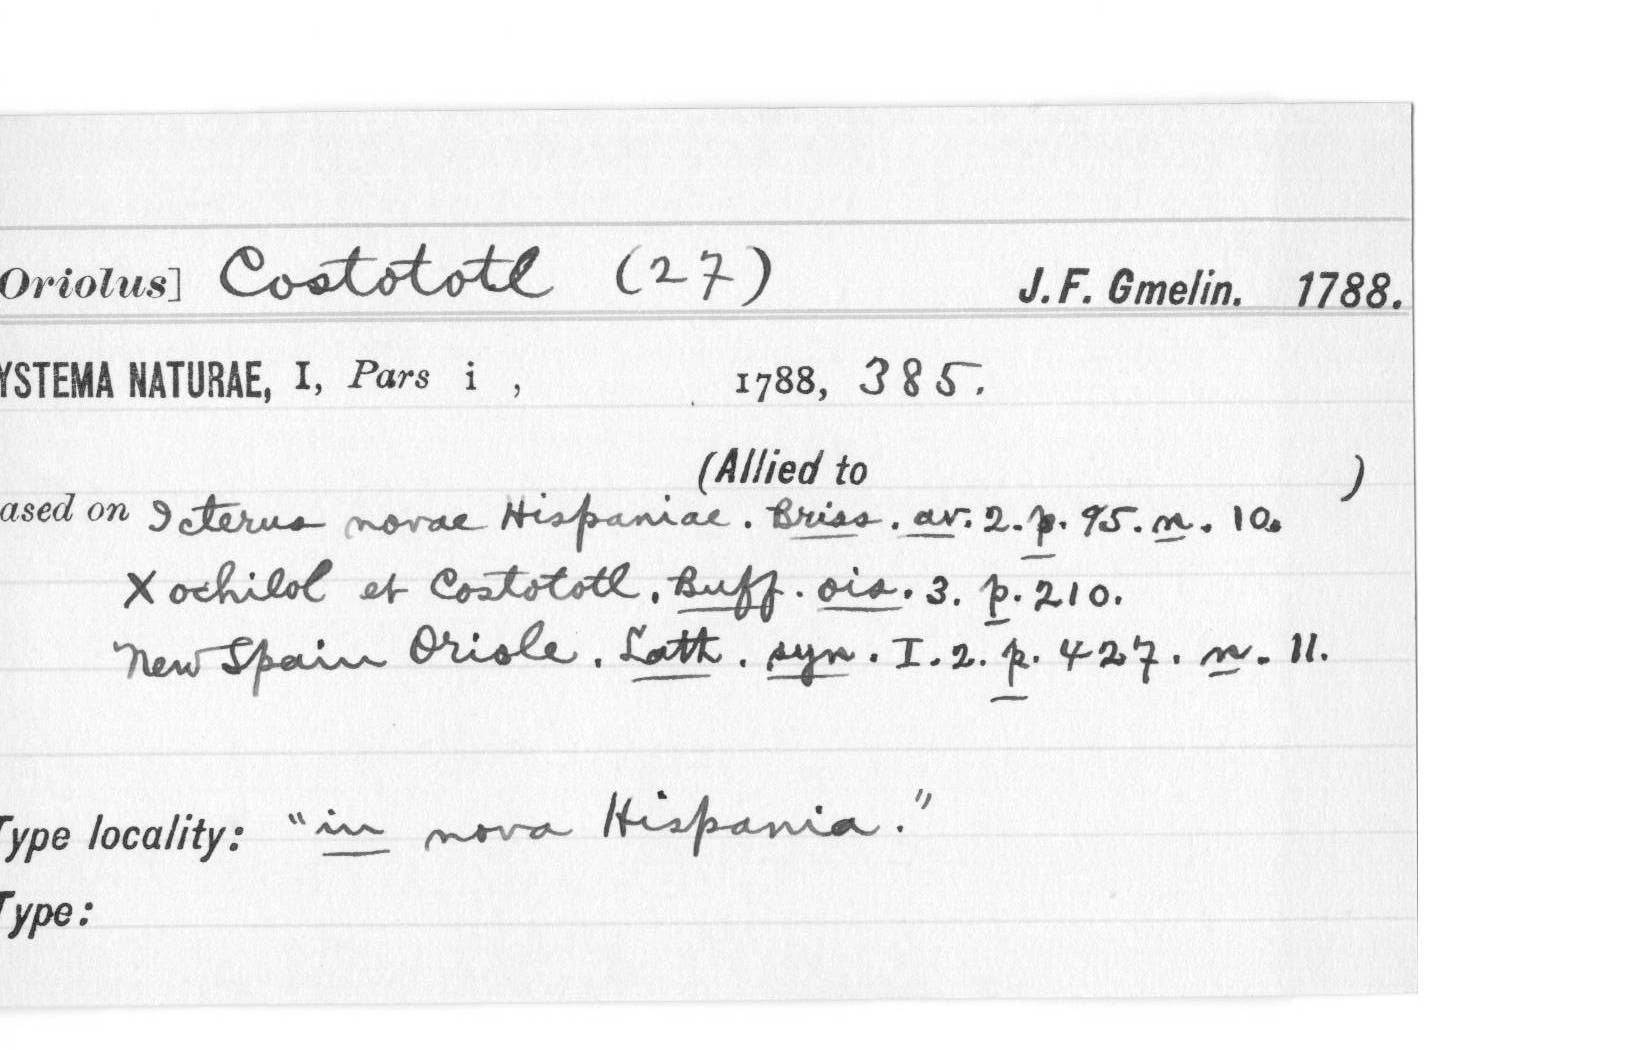 Oriolus] Costototl (27) J. F. Gmelin. 1788.
YSTEMA NATURAE, I, Pars i , 1788, 385.
(Allied to )
ased on Icterus novae Hispaniae. Briss. av. 2. p. 95. n. 10.
Xochilol et Costototl. Buff. ois. 3. p. 210.
New Spain Oriole. Lath. syn. I. 2. p. 427. n. 11.
Type locality: "in nova Hispania."
Type: